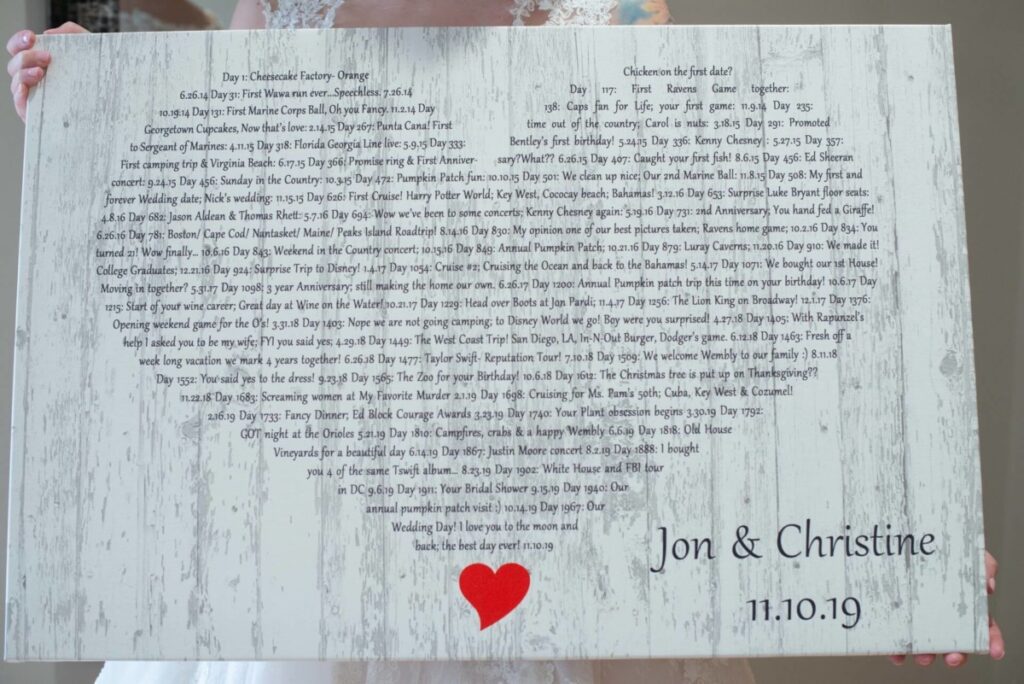 Day 1: Cheesecake Factory- Orange Chicken on the first date?
6.26.14 Day 31: First Wawa run ever...Speechless. 7.26.14 Day 117: First Ravens Game together:
10.19.14 Day 131: First Marine Corps Ball, Oh you Fancy. 11.2.14 Day 138: Caps fan for Life; your first game: 11.9.14 Day 235:
Georgetown Cupcakes, Now that's love: 2.14.15 Day 267: Punta Cana! First time out of the country; Carol is nuts: 3.18.15 Day 291: Promoted
to Sergeant of Marines: 4.11.15 Day 318: Florida Georgia Line live: 5.9.15 Day 333: Bentley's first birthday! 5.24.15 Day 336: Kenny Chesney : 5.27.15 Day 357:
First camping trip & Virginia Beach: 6.17.15 Day 366: Promise ring & First Anniver- sary?What?? 6.26.15 Day 407: Caught your first fish! 8.6.15 Day 456: Ed Sheeran
concert: 9.24.15 Day 456: Sunday in the Country: 10.3.15 Day 472: Pumpkin Patch fun: 10.10.15 Day 501: We clean up nice; Our 2nd Marine Ball: 11.8.15 Day 508: My first and
forever Wedding date; Nick's wedding: 11.15.15 Day 626: First Cruise! Harry Potter World; Key West, Cococay beach; Bahamas! 3.12.16 Day 653: Surprise Luke Bryant floor seats:
4.8.16 Day 682: Jason Aldean & Thomas Rhett: 5.7.16 Day 694: Wow we've been to some concerts; Kenny Chesney again: 5.19.16 Day 731: 2nd Anniversary; You hand fed a Giraffe!
6.26.16 Day 781: Boston/ Cape Cod/ Nantasket/ Maine/ Peaks Island Roadtrip! 8.14.16 Day 830: My opinion one of our best pictures taken; Ravens home game; 10.2.16 Day 834: You
turned 21! Wow finally... 10.6.16 Day 843: Weekend in the Country concert; 10.15.16 Day 849: Annual Pumpkin Patch; 10.21.16 Day 879: Luray Caverns; 11.20.16 Day 910: We made it!
College Graduates; 12.21.16 Day 924: Surprise Trip to Disney! 1.4.17 Day 1054: Cruise #2; Cruising the Ocean and back to the Bahamas! 5.14.17 Day 1071: We bought our 1st House!
Moving in together? 5.31.17 Day 1098: 3 year Anniversary; still making the home our own. 6.26.17 Day 1200: Annual Pumpkin patch trip this time on your birthday! 10.6.17 Day
1215: Start of your wine career; Great day at Wine on the Water! 10.21.17 Day 1229: Head over Boots at Jon Pardi; 11.4.17 Day 1256: The Lion King on Broadway! 12.1.17 Day 1376:
Opening weekend game for the O's! 3.31.18 Day 1403: Nope we are not going camping; to Disney World we go! Boy were you surprised! 4.27.18 Day 1405: With Rapunzel's
help I asked you to be my wife; FYI you said yes; 4.29.18 Day 1449: The West Coast Trip! San Diego, LA, In-N-Out Burger, Dodger's game. 6.12.18 Day 1463: Fresh off a
week long vacation we mark 4 years together! 6.26.18 Day 1477: Taylor Swift- Reputation Tour! 7.10.18 Day 1509: We welcome Wembly to our family :) 8.11.18
Day 1552: You said yes to the dress! 9.23.18 Day 1565: The Zoo for your Birthday! 10.6.18 Day 1612: The Christmas tree is put up on Thanksgiving??
11.22.18 Day 1683: Screaming women at My Favorite Murder 2.1.19 Day 1698: Cruising for Ms. Pam's 50th; Cuba, Key West & Cozumel!
2.16.19 Day 1733: Fancy Dinner; Ed Block Courage Awards 3.23.19 Day 1740: Your Plant obsession begins 3.30.19 Day 1792:
GOT night at the Orioles 5.21.19 Day 1810: Campfires, crabs & a happy Wembly 6.6.19 Day 1818: Old House
Vineyards for a beautiful day 6.14.19 Day 1867: Justin Moore concert 8.2.19 Day 1888: I bought
you 4 of the same Tswift album... 8.23.19 Day 1902: White House and FBI tour
in DC 9.6.19 Day 1911: Your Bridal Shower 9.15.19 Day 1940: Our
annual pumpkin patch visit :) 10.14.19 Day 1967: Our
Wedding Day! I love you to the moon and
back; the best day ever! 11.10.19
Jon & Christine
11.10.19